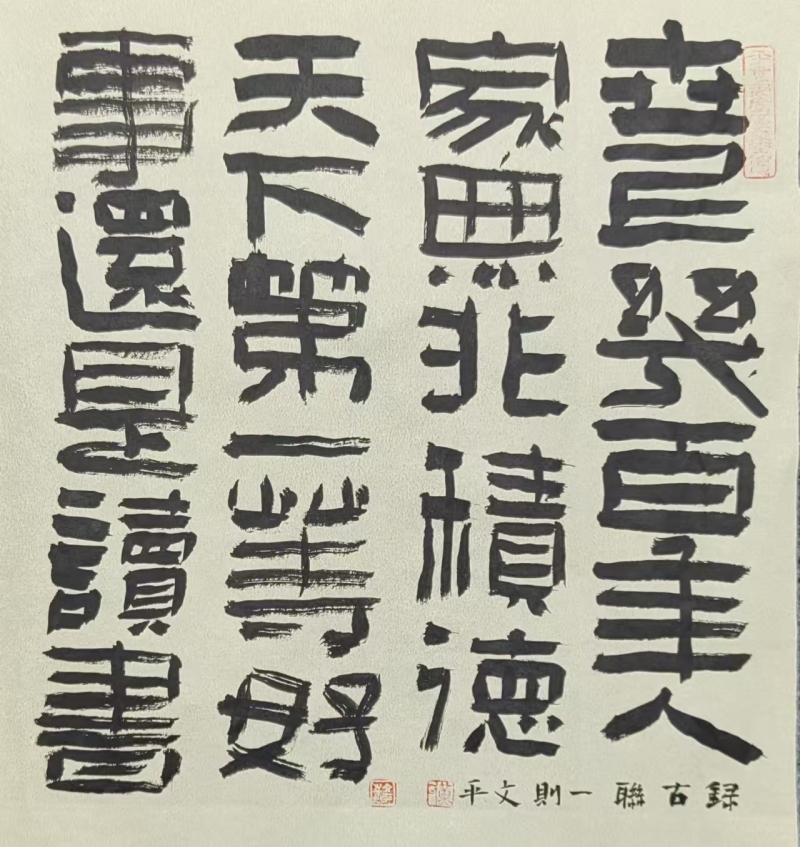 世幾百年人
家無非積德
天下第一等好
事還是讀書
録古聯一則文平